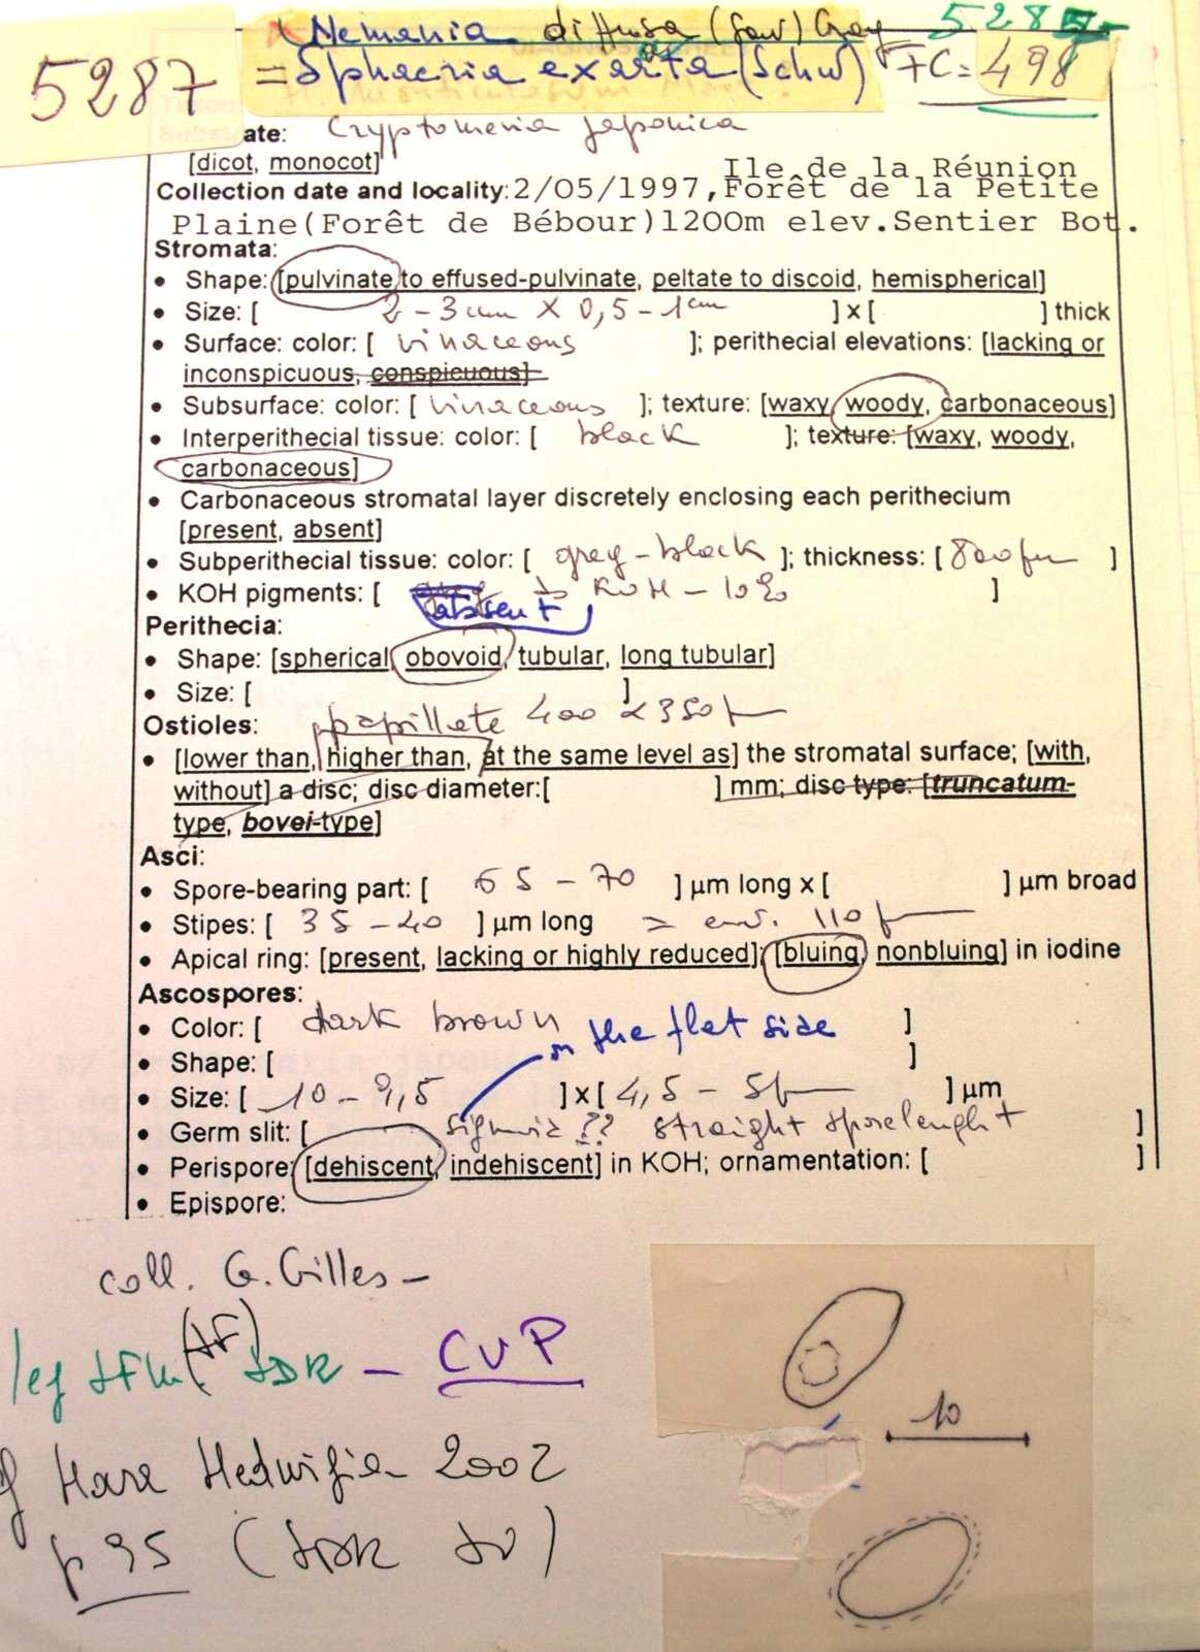 Nemania diffusa (Sow) Gray 5285
5287 = Sphaeria exarata (Schw) FC = 498
ate: Cryptomeria japonica
[dicot, monocot]
Ile de la Réunion
Collection date and locality: 2/05/1997, Forêt de la Petite
Plaine(Forêt de Bébour)1200m elev. Sentier Bot.
Stromata:
• Shape: [pulvinate to effused-pulvinate, peltate to discoid, hemispherical]
• Size: [ 2-3 cm X 0,5-1cm ] x [ ] thick
• Surface: color: [ vinaceous ]; perithecial elevations: [lacking or
inconspicuous, conspicuous]
• Subsurface: color: [ vinaceous ]; texture: [waxy, woody, carbonaceous]
• Interperithecial tissue: color: [ black ]; texture: [waxy, woody,
carbonaceous]
• Carbonaceous stromatal layer discretely enclosing each perithecium
[present, absent]
• Subperithecial tissue: color: [ grey-black ]; thickness: [ 800 µm ]
• KOH pigments: [ KOH - 10% ]
absent
Perithecia:
• Shape: [spherical, obovoid, tubular, long tubular]
• Size: [ ]
Ostioles: papillate 400 x 350 µ
• [lower than, higher than, at the same level as] the stromatal surface; [with,
without] a disc; disc diameter:[ ] mm; disc type: [truncatum-
type, bovei-type]
Asci:
• Spore-bearing part: [ 65 - 70 ] µm long x [ ] µm broad
• Stipes: [ 35 - 40 ] µm long = env. 110 µ
• Apical ring: [present, lacking or highly reduced]; [bluing, nonbluing] in iodine
Ascospores:
• Color: [ dark brown ]
on the flat side
• Shape: [ ]
• Size: [ 10 - 9,5 ] x [ 4,5 - 5µ ] µm
• Germ slit: [ sigmoid ?? straight sporelenght ]
• Perispore: [dehiscent, indehiscent] in KOH; ornamentation: [ ]
• Epispore:
coll. G. Gilles -
leg (AF) - CVP
10
Hedwigia 2002
p 95